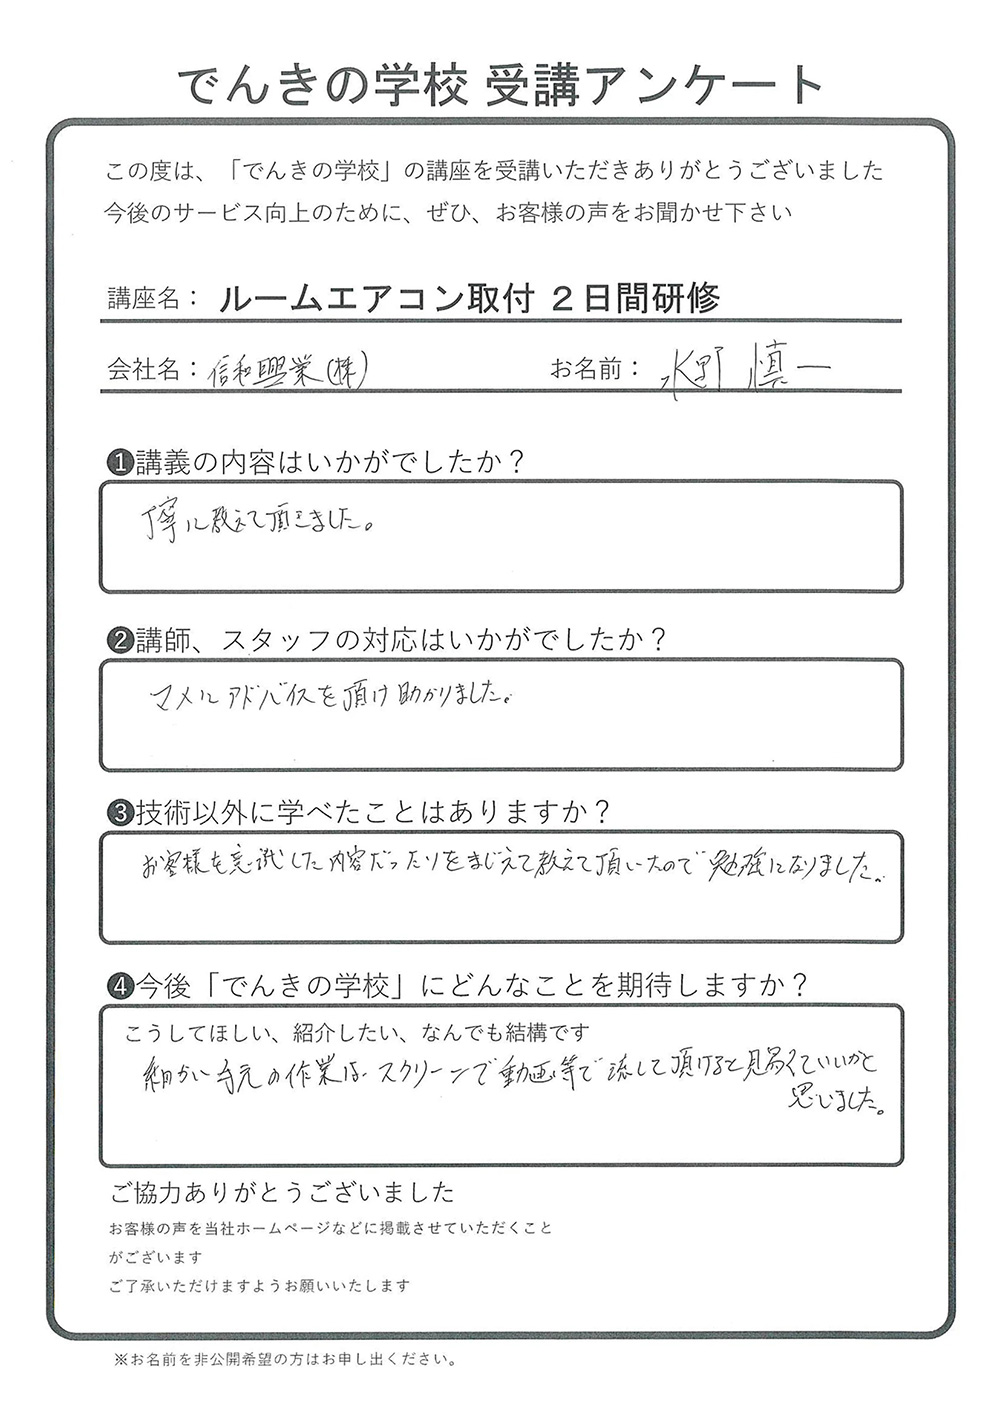 でんきの学校 受講アンケート
この度は、「でんきの学校」の講座を受講いただきありがとうございました
今後のサービス向上のために、ぜひ、お客様の声をお聞かせ下さい
講座名： ルームエアコン取付 ２日間研修
会社名：信和興業(株) お名前： 水野 慎一
❶講義の内容はいかがでしたか？
丁寧に教えて頂きました。
❷講師、スタッフの対応はいかがでしたか？
マメにアドバイスを頂け助かりました。
❸技術以外に学べたことはありますか？
お客様を意識した内容だったりをまじえて教えて頂いたので勉強になりました。
❹今後「でんきの学校」にどんなことを期待しますか？
こうしてほしい、紹介したい、なんでも結構です
細かい手元の作業は、スクリーンで動画等で流して頂けると見易くていいかと
思いました。
ご協力ありがとうございました
お客様の声を当社ホームページなどに掲載させていただくこと
がございます
ご了承いただけますようお願いいたします
※お名前を非公開希望の方はお申し出ください。